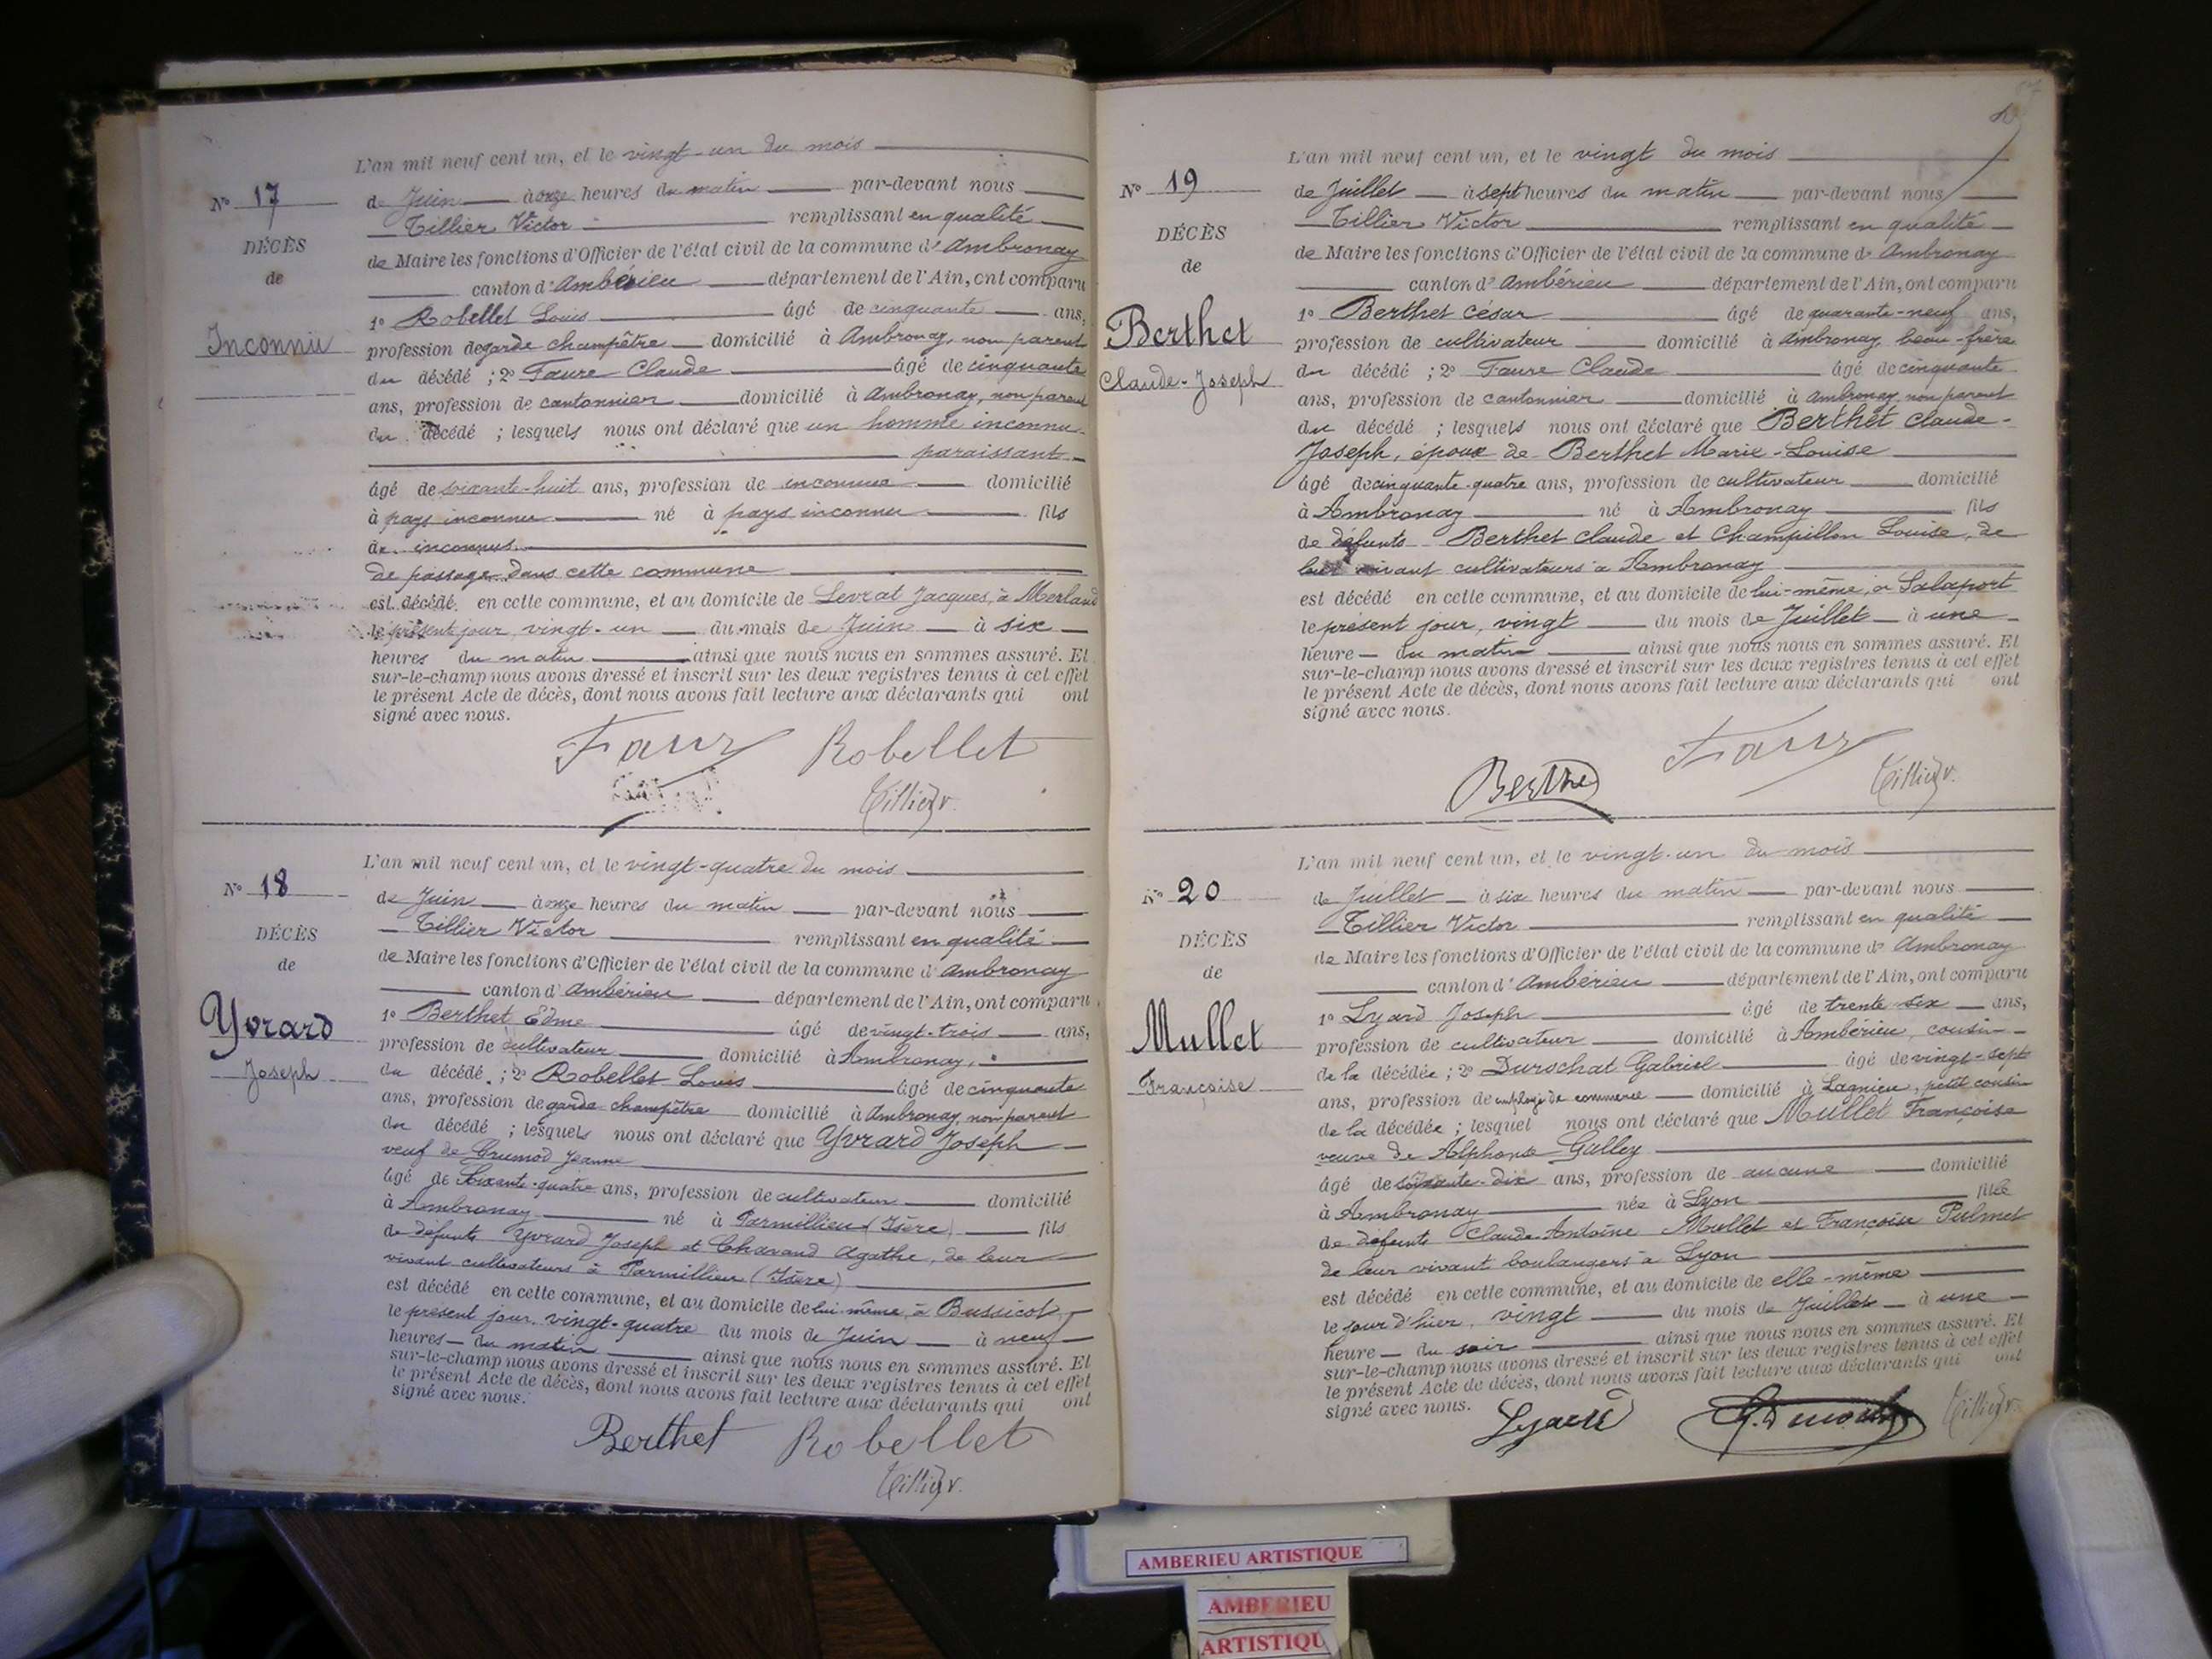 L'an mil neuf cent un, et le vingt-un du mois
N° 17
de Juin à onze heures du matin par-devant nous
Tillier Victor remplissant en qualité
DÉCÈS
de Maire les fonctions d'Officier de l'état civil de la commune d'Ambronay
de
canton d'Ambérieu département de l'Ain, ont comparu
1° Robellet Louis âgé de cinquante ans,
Inconnu
profession de garde champêtre domicilié à Ambronay, non parent
du décédé ; 2° Faure Claude âgé de cinquante
ans, profession de cantonnier domicilié à Ambronay, non parent
du décédé ; lesquels nous ont déclaré que un homme inconnu
paraissant
âgé de soixante-huit ans, profession de inconnue domicilié
à pays inconnu né à pays inconnu fils
de inconnus
de passage dans cette commune
est décédé en cette commune, et au domicile de Levrat Jacques, à Merland
le présent jour, vingt-un du mois de Juin à six
heures du matin ainsi que nous nous en sommes assuré. Et
sur-le-champ nous avons dressé et inscrit sur les deux registres tenus à cet effet
le présent Acte de décès, dont nous avons fait lecture aux déclarants qui ont
signé avec nous.
Faure Robellet
Tillier V.
L'an mil neuf cent un, et le vingt-quatre du mois
N° 18
de Juin à onze heures du matin par-devant nous
Tillier Victor remplissant en qualité
DÉCÈS
de Maire les fonctions d'Officier de l'état civil de la commune d'Ambronay
de
canton d'Ambérieu département de l'Ain, ont comparu
1° Berthet Edme âgé de vingt-trois ans,
Yvrard
profession de cultivateur domicilié à Ambronay,
Joseph
du décédé ; 2° Robellet Louis âgé de cinquante
ans, profession de garde champêtre domicilié à Ambronay, non parent
du décédé ; lesquels nous ont déclaré que Yvrard Joseph
veuf de Grumod Jeanne
âgé de soixante-quatre ans, profession de cultivateur domicilié
à Ambronay né à Parmillieu (Isère) fils
de défunts Yvrard Joseph et Chavand Agathe, de leur
vivant cultivateurs à Parmillieu (Isère)
est décédé en cette commune, et au domicile de lui-même, à Bussicot,
le présent jour, vingt-quatre du mois de Juin à neuf
heures du matin ainsi que nous nous en sommes assuré. Et
sur-le-champ nous avons dressé et inscrit sur les deux registres tenus à cet effet
le présent Acte de décès, dont nous avons fait lecture aux déclarants qui ont
signé avec nous.
Berthet Robellet
Tillier V.
L'an mil neuf cent un, et le vingt du mois
N° 19
de Juillet à sept heures du matin par-devant nous
Tillier Victor remplissant en qualité
DÉCÈS
de Maire les fonctions d'Officier de l'état civil de la commune d'Ambronay
de
canton d'Ambérieu département de l'Ain, ont comparu
1° Berthet César âgé de quarante-neuf ans,
Berthet
profession de cultivateur domicilié à Ambronay, beau-frère
Claude-Joseph
du décédé ; 2° Faure Claude âgé de cinquante
ans, profession de cantonnier domicilié à Ambronay, non parent
du décédé ; lesquels nous ont déclaré que Berthet Claude-
Joseph, époux de Berthet Marie-Louise
âgé de cinquante-quatre ans, profession de cultivateur domicilié
à Ambronay né à Ambronay fils
de défunts Berthet Claude et Champillon Louise, de
leur vivant cultivateurs à Ambronay
est décédé en cette commune, et au domicile de lui-même, à Salaport
le présent jour, vingt du mois de Juillet à une
heure du matin ainsi que nous nous en sommes assuré. Et
sur-le-champ nous avons dressé et inscrit sur les deux registres tenus à cet effet
le présent Acte de décès, dont nous avons fait lecture aux déclarants qui ont
signé avec nous.
Berthet Faure Tillier V.
L'an mil neuf cent un, et le vingt-un du mois
N° 20
de Juillet à six heures du matin par-devant nous
Tillier Victor remplissant en qualité
DÉCÈS
de Maire les fonctions d'Officier de l'état civil de la commune d'Ambronay
de
canton d'Ambérieu département de l'Ain, ont comparu
1° Lyard Joseph âgé de trente-six ans,
Mullet
profession de cultivateur domicilié à Ambérieu, cousin
Françoise
de la décédée ; 2° Durochat Gabriel âgé de vingt-sept
ans, profession de employé de commerce domicilié à Lagnieu, petit cousin
de la décédée ; lesquel nous ont déclaré que Mullet Françoise
veuve de Alphonse Galley
âgé de soixante-dix ans, profession de aucune domicilié
à Ambronay née à Lyon fille
de défunts Claude-Antoine Mullet et Françoise Pulmet
de leur vivant boulangers à Lyon
est décédé en cette commune, et au domicile de elle-même
le jour d'hier, vingt du mois de Juillet à une
heure du soir ainsi que nous nous en sommes assuré. Et
sur-le-champ nous avons dressé et inscrit sur les deux registres tenus à cet effet
le présent Acte de décès, dont nous avons fait lecture aux déclarants qui ont
signé avec nous.
Lyard Tillier V.
AMBERIEU ARTISTIQUE
AMBERIEU
ARTISTIQU